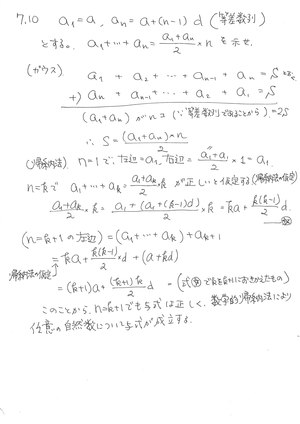 7.10 a₁=a, aₙ=a+(n-1)d (等差数列)
とする。 a₁+…+aₙ=(a₁+aₙ)/2×n を示せ.
(ガウス) a₁ + a₂ + … + aₙ₋₁ + aₙ = S
+) aₙ + aₙ₋₁ + … + a₂ + a₁ = S
(a₁+aₙ)がnコ(∵等差数列であることから)=2S
∴ S=(a₁+aₙ)×n/2
(帰納法) n=1で, 左辺=a₁, 右辺=(a₁+a₁)/2×1=a₁
n=kで a₁+…+aₖ=(a₁+aₖ)/2×k が正しいと仮定する(帰納法の仮定)
(a₁+aₖ)/2×k=(a₁+(a₁+(k-1)d))/2×k=ka+k(k-1)/2 d
(n=k+1の左辺)=(a₁+…+aₖ)+aₖ₊₁
帰納法の仮定 =ka+k(k-1)/2 d+(a+kd)
=(k+1)a+(k+1)k/2 d =(式でkをk+1におきかえたもの)
このことから, n=k+1でも与式は正しく, 数学的帰納法により
任意の自然数について与式が成立する.